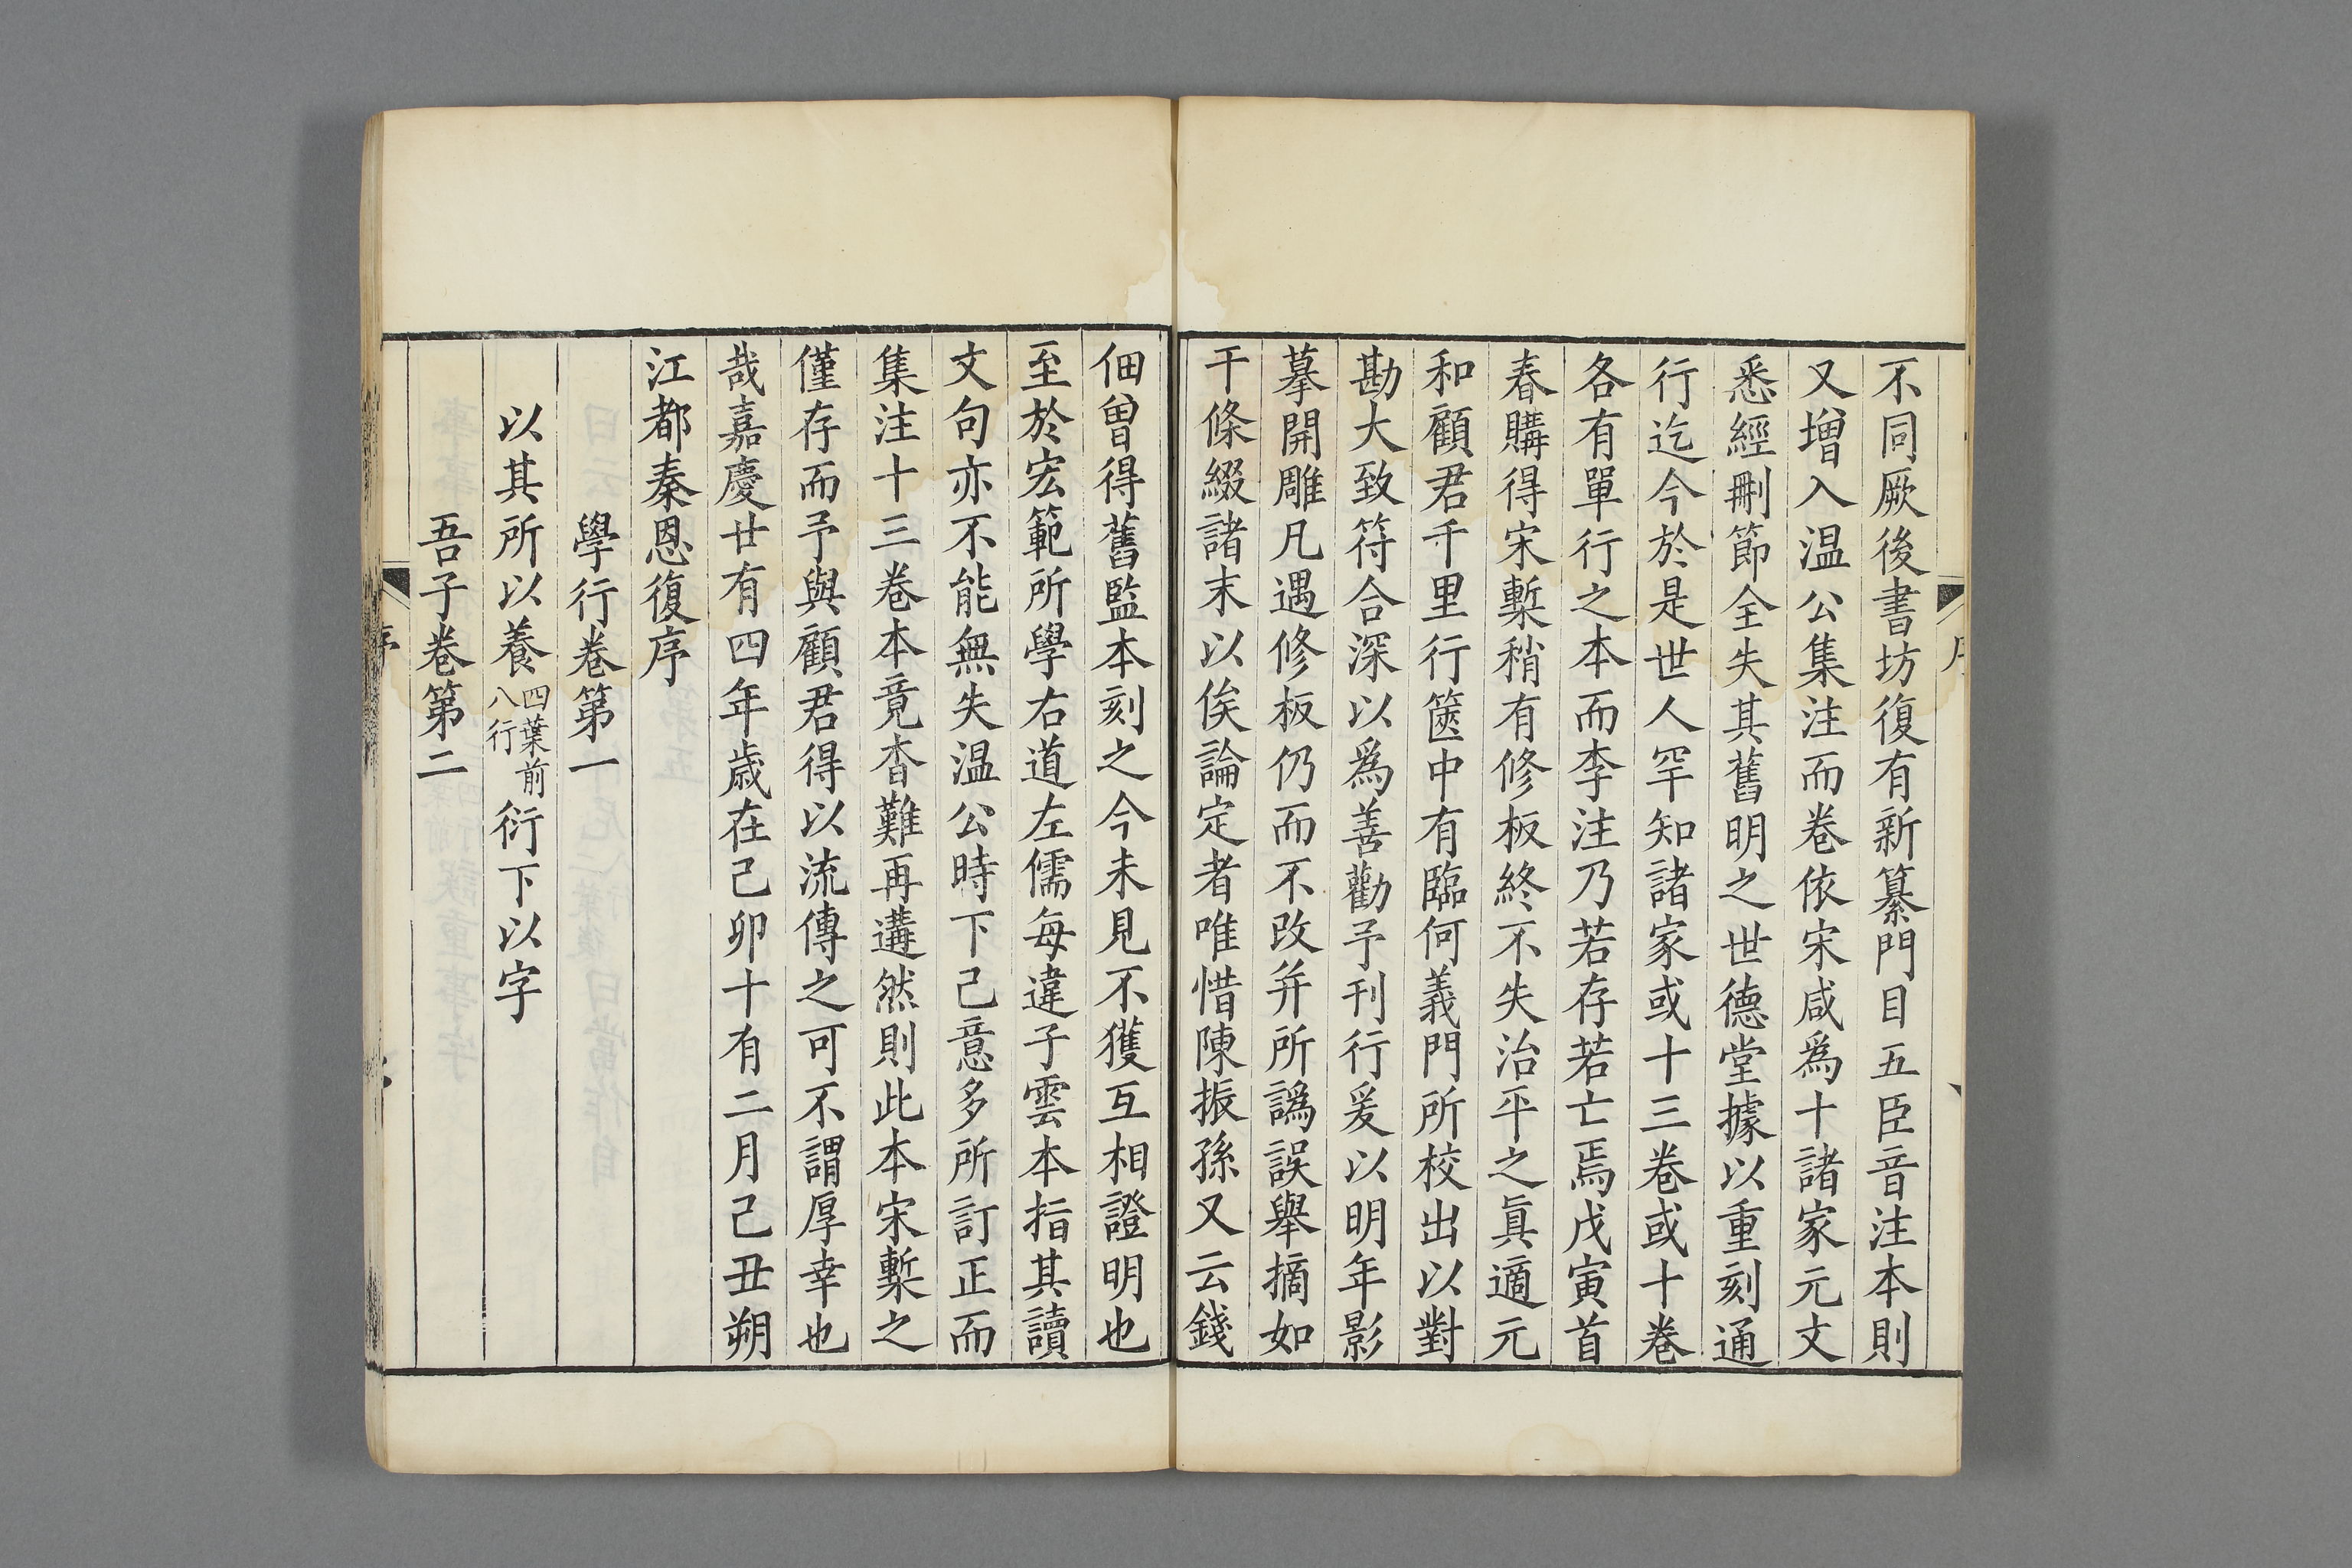 不同厥後書坊復有新纂門目五臣音注本則
又增入温公集注而卷依宋咸爲十諸家元文
悉經刪節全失其舊明之世德堂據以重刻通
行迄今於是世人罕知諸家或十三卷或十卷
各有單行之本而李注乃若存若亡焉戊寅首
春購得宋槧稍有修板終不失治平之眞適元
和顧君千里行篋中有臨何義門所校出以對
勘大致符合深以爲善勸予刊行爰以明年影
摹開雕凡遇修板仍而不改并所譌誤舉摘如
干條綴諸末以俟論定者唯惜陳振孫又云錢
佃曾得舊監本刻之今未見不獲互相證明也
至於宏範所學右道左儒每違子雲本指其讀
文句亦不能無失温公時下己意多所訂正而
集注十三卷本竟杳難再遘然則此本宋槧之
僅存而予與顧君得以流傳之可不謂厚幸也
哉嘉慶廿有四年歲在己卯十有二月己丑朔
江都秦恩復序
學行卷第一
以其所以養四葉前八行衍下以字
吾子卷第二
序